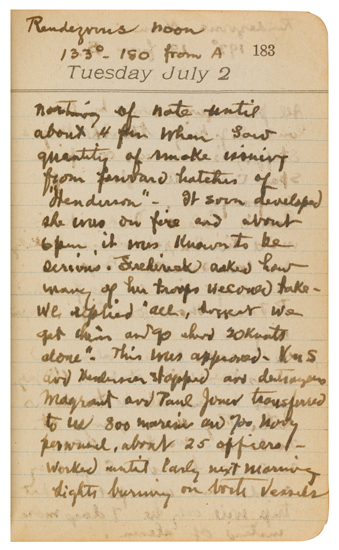 Rendezvous noon
133° - 180 from A
183
Tuesday July 2
Nothing of note until
about 4 pm when saw
quantity of smoke issuing
from forward hatches of
"Henderson" - It soon developed
she was on fire and about
6 pm, it was known to be
serious. Frederick asked how
many of his troops we could take -
We replied "all, suggest we
get them and go ahead 20 knots
alone". This was approved - We
and Henderson stopped and destroyers
Mayrant and Paul Jones transferred
to us 800 marines and 70 Navy
personnel, about 25 officers -
Worked until early next morning
lights burning on both vessels